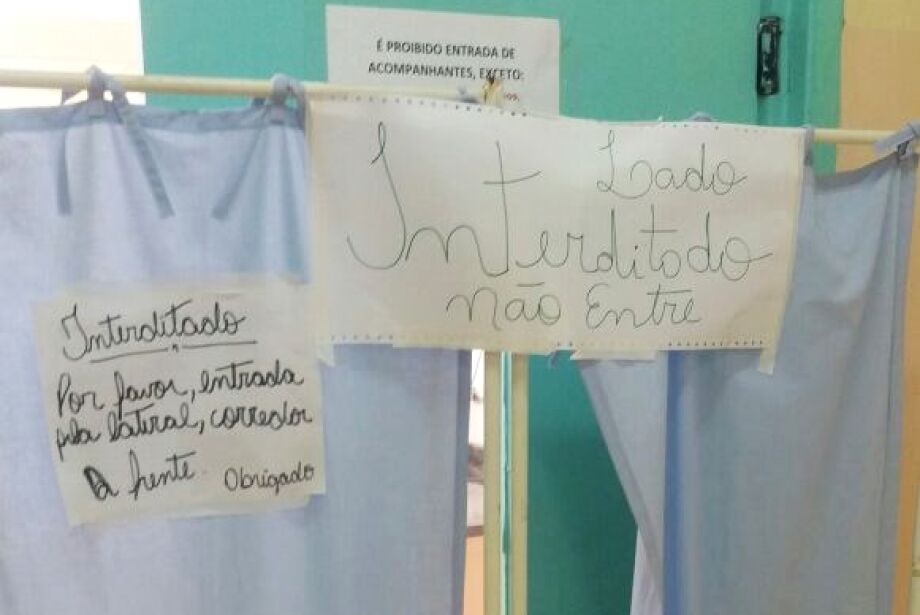 É PROIBIDO ENTRADA DE
ACOMPANHANTES, EXCETO:
Lado
Interditodo
não Entre
Interditado
Por favor, entrada
pela lateral, corredor
a frente. Obrigado